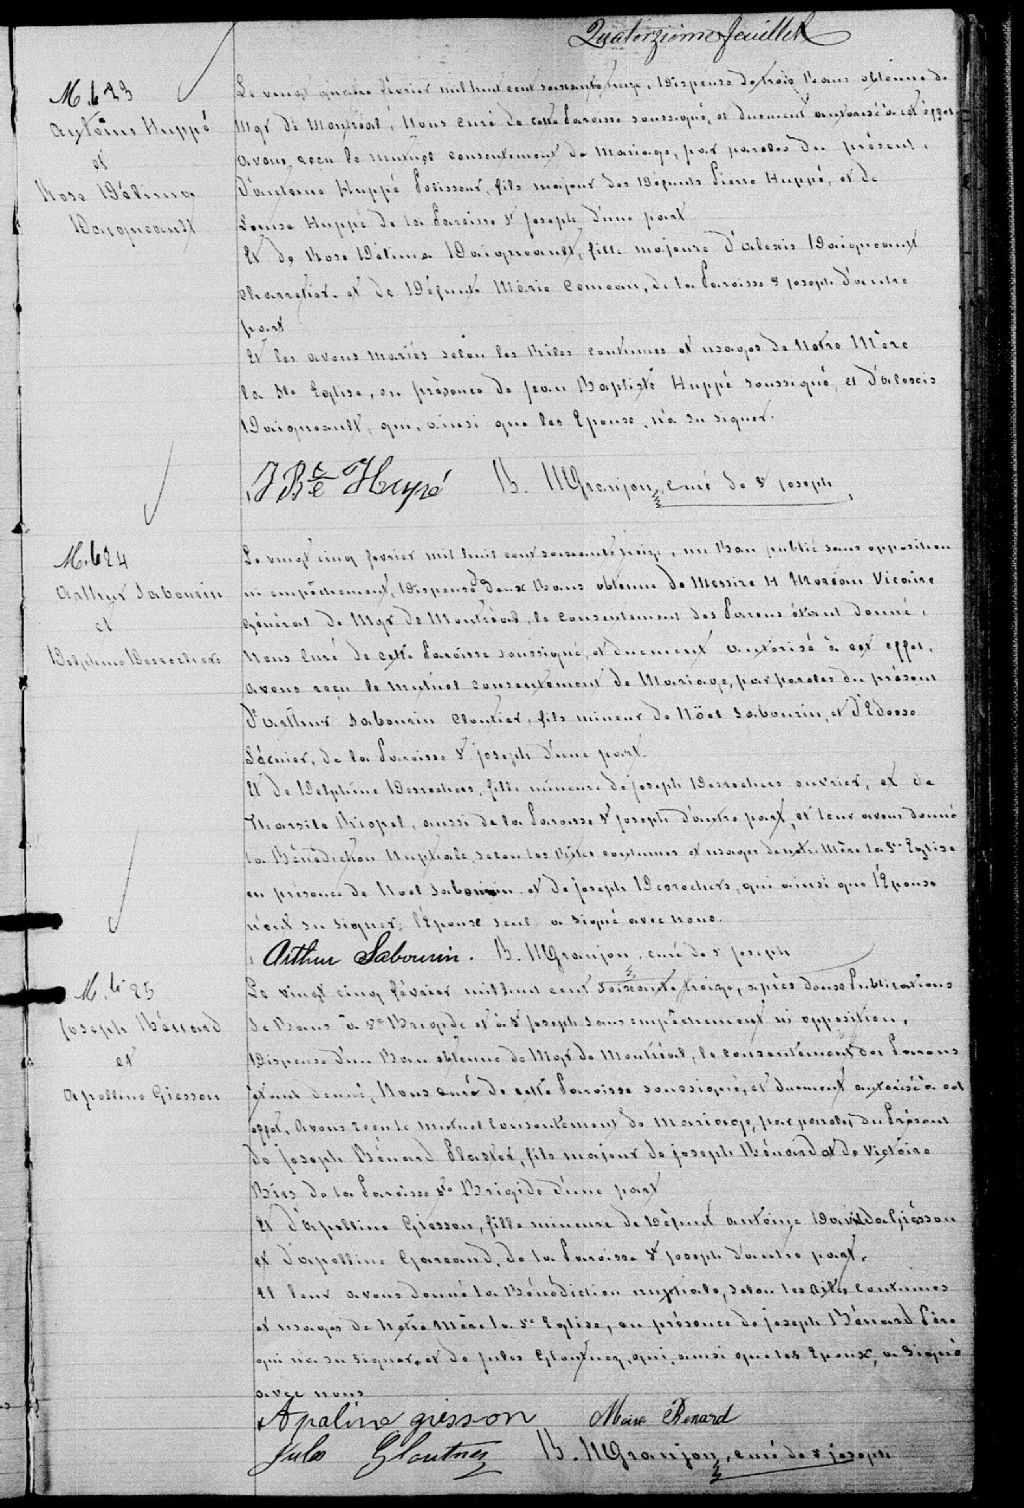 Quatorzième feuillet
M. 623
Antoine Huppé
et
Rose Délima
Daigneault
Le vingt quatre février mil huit cent soixante treize, Dispense de trois Bans obtenue de
Mgr de Montréal, Nous curé de cette Paroisse soussigné, et duement autorisé à cet effet
avons reçu le mutuel consentement de Mariage, par paroles du présent,
D'antoine Huppé Polisseur, fils majeur des Défunts Pierre Huppé, et de
Louise Huppé de la Paroisse St Joseph d'une part
Et de Rose Délima Daigneault, fille majeure d'alexis Daigneault
charretier et de Défunte Mérie Comeau, de la Paroisse St Joseph d'autre
part
Et les avons mariés selon les Rites coutumes et usages de Notre Mère
la Ste Eglise, en présence de Jean Baptiste Huppé soussigné, et d'alexis
Daigneault, qui, ainsi que les Epoux, n'a su signer.
J Bte Huppé B. MGranjon, curé de St Joseph
M. 624
Arthur Sabourin
et
Delphine Desrochers
Le vingt cinq février mil huit cent soixante treize, un Ban publié sans opposition
ni empêchement, Dispense de deux Bans obtenue de Messire H Moreau Vicaire
Général de Mgr de Montréal, le consentement des Parens étant donné,
Nous Curé de cette Paroisse soussigné, et duement autorisé à cet effet,
avons reçu le mutuel consentement de Mariage, par paroles du présent
D'arthur Sabourin Cloutier, fils mineur de Nöel Sabourin, et d'Edesse
, de la Paroisse St Joseph d'une part.
Et de Delphine Desrochers, fille mineure de Joseph Desrochers ouvrier, et de
Tharsile Riopel, aussi de la Paroisse St Joseph d'autre part, et leur avons donné
la Bénédiction Nuptiale, selon les Rites coutumes et usages de notre Mère la Ste Eglise
en présence de Noel Sabourin et de Joseph Desrochers, qui ainsi que l'Epouse
n'ont su signer; l'Epoux seul a signé avec nous.
Arthur Sabourin. B. MGranjon, curé de St Joseph
M. 625
Joseph Bénard
et
Apolline Giesson
Le vingt cinq février mil huit cent soixante treize, après deux Publications
de Bans à Ste Brigide et à St Joseph sans empêchement ni opposition,
Dispense d'un Ban obtenue de Mgr de Montréal, le consentement des Parens
étant donné, Nous curé de cette Paroisse soussigné, et duement autorisé à cet
effet, avons reçu le mutuel consentement de Mariage, par paroles du Présent
de Joseph Bénard , fils majeur de Joseph Bénard et de Victoire
de la Paroisse Ste Brigide d'une part
Et d'apolline Giesson, fille mineure de Défunt antoine David Giesson
et d'apolline Gareaud, de la Paroisse St Joseph d'autre part.
Et leur avons donné la Bénédiction nuptiale, selon les Rites coutumes
et usages de Notre Mère la Ste Eglise, en présence de Joseph Bénard Père
qui n'a su signer, et de Jules Gloutnez, qui, ainsi que les Epoux, a signé
avec nous
Apaline giesson Benard
Jules Gloutnez B. MGranjon, curé de St Joseph